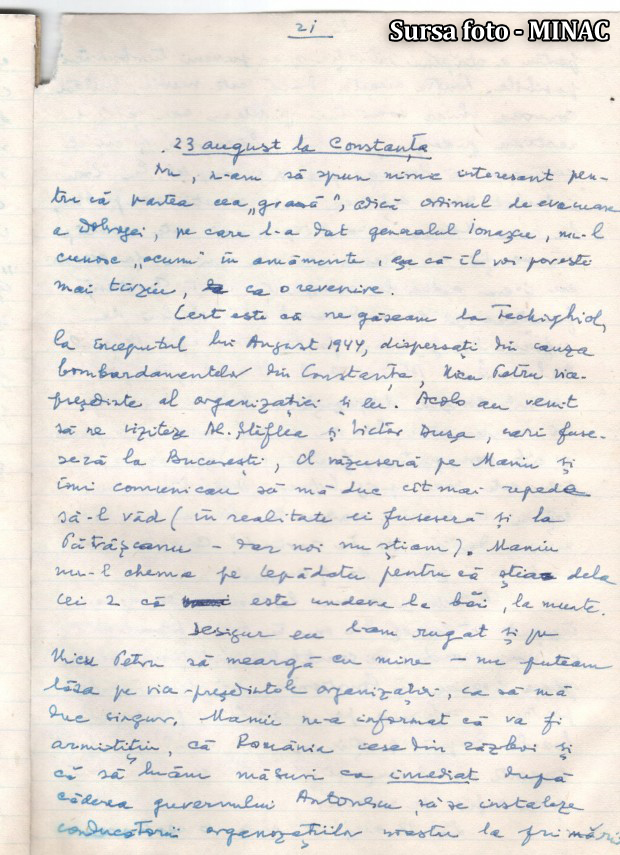 21
Sursa foto - MINAC
23 august la Constanţa
Nu, n-am să spun nimic interesant pen-
tru că partea cea „grasă", adică ordinul de evacuare
a Dobrogei, pe care l-a dat generalul Ionaşcu, nu-l
cunosc „acum" în amănunte, aşa că îl voi povesti
mai târziu, ca o revenire.
Cert este că ne găseam la Techirghiol,
la începutul lui August 1944, dispersaţi din cauza
bombardamentelor din Constanţa, Nicu Petru vice-
preşedinte al organizaţiei şi eu. Acolo au venit
să ne viziteze Al. Stiflea şi Victor Duşa, cari fuse-
seră la Bucureşti, îl văzuseră pe Maniu şi
îmi comunicau să mă duc cît mai repede
să-l văd (în realitate ei fuseseră şi la
Pătrăşcanu - dar noi nu ştiam). Maniu
nu-l chema pe Lepădatu pentru că ştia dela
cei 2 că este undeva la băi, la munte.
Desigur eu l-am rugat şi pe
Nicu Petru să meargă cu mine - nu puteam
lăsa pe vice-preşedintele organizaţiei, ca să mă
duc singur. Maniu ne-a informat că va fi
armistiţiu, că România iese din război şi
că să luăm măsuri ca imediat după
căderea guvernului Antonescu să se instaleze
conducătorii organizaţiilor noastre la primării